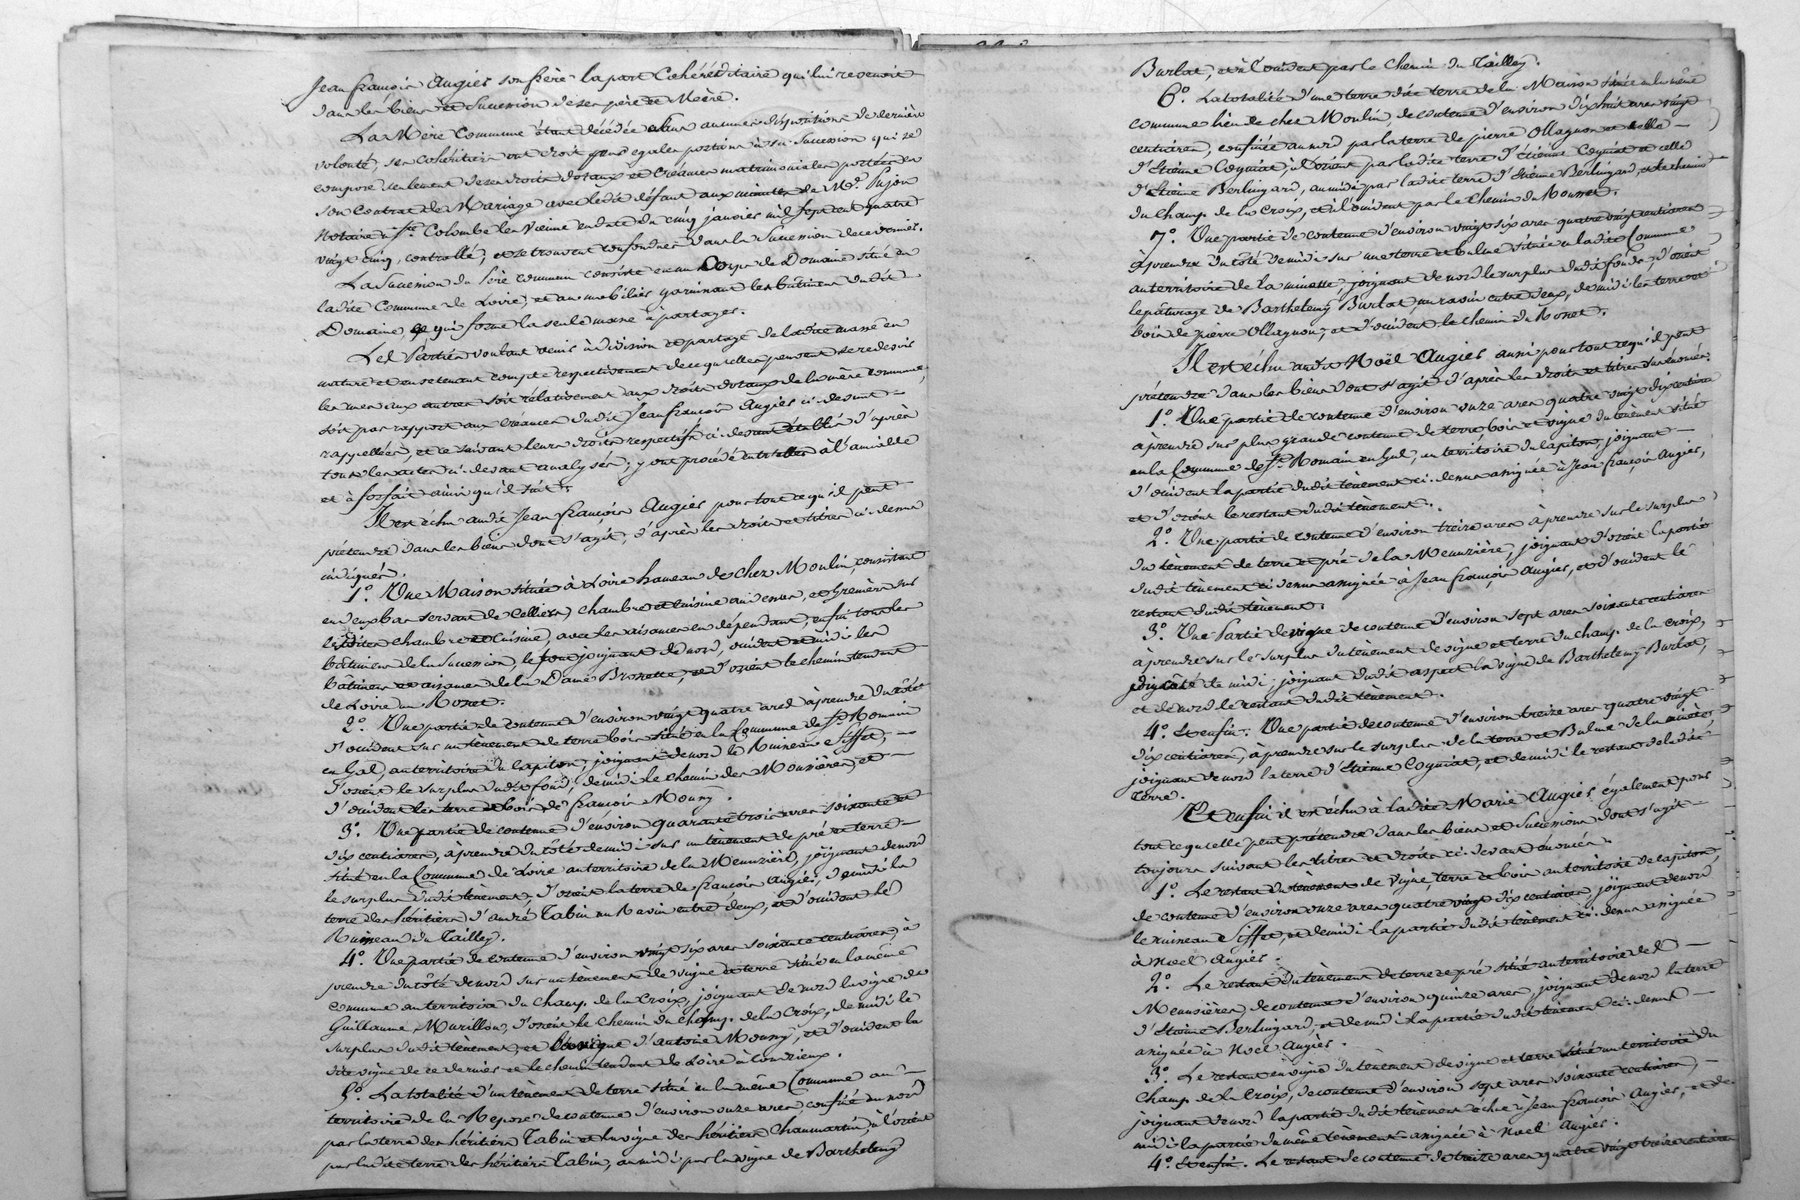 Jean françois Augier son frère la part Cohéréditaire qui lui revenoit
dans les biens et Succession de ses père et Mère.
La Mère Commune étant décédée sans aucunes dispositions de dernière
volonté, ses cohéritiers ont droit pour egales portions à sa Succession qui se
compose seulement de ses droits dotaux et Créances matrimoniales portées en
son Contrat de Mariage avec ledit défunt aux minutes de Me. Pujon
Notaire à Ste. Colombe les Vienne en date du cinq janvier mil sept cent quatre
vingt cinq, controllé, et se trouvent confondues dans la Succession de ce dernier.
La Succession du Père commun consiste en un Corps de Domaine situé en
ladite Commune de Loire, et au mobilier garnissant les bâtimens dudit
Domaine, ce qui forme la seule masse à partager.
Les Parties voulant venir à division et partage de ladite masse en
nature et en se tenant compte respectivement de ce qu'elles peuvent se redevoir
les unes aux autres soit rélativement aux droits dotaux de la mère commune,
soit par rapport aux créances dudit Jean françois Augier ci-devant
rappellées, et ce suivant leurs droits respectifs ci-devant établis d'après
tous les actes ci-devant analysés; y ont procédé entr'elles à l'amiable
et à forfait ainsi qu'il suit.
Il est échu audit Jean françois Augier pour tout ce qu'il peut
prétendre dans les biens dont s'agit, d'après les droits et titres ci-dessus
indiqués.
1°. Une Maison située à Loire hameau de chez Moulin, consistant
en deux bas servant de Celliers, chambre et Cuisine au dessus, et Greniers sur
lesdites chambre et Cuisine, avec les aisances en dépendant, enfin tous les
bâtimens de la Succession, le tout joignant de nord, occident et midi les
bâtimens et aisances de la Dame Brossette, et d'orient le chemin tendant
de Loire au Rosnet.
2°. Une partie de contenue d'environ vingt quatre ares à prendre du côté
d'occident sur un tènement de terre bois situé en la Commune de St. Romain
en Gal, au territoire du Capiton, joignant de nord le Ruisseau e Siffet,
d'orient le surplus dudit fond, de midi le chemin des Mousières, et
d'occident les terre et bois de françois Mouny.
3°. Une partie de contenue d'environ quarante trois ares soixante et
dix centiares, à prendre du côté de midi sur un tènement de pré et terre
situé en la Commune de Loire au territoire de la Meunzière, joignant de nord
le surplus dudit tènement, d'orient la terre de françois Augier, de midi la
terre des héritiers d'André Tabin un Ravin entre deux, et d'occident le
Ruisseau du Tailley.
4°. Une partie de contenue d'environ vingt six ares soixante centiares, à
prendre du côté de nord sur un tènement de vigne et terre situé en la même
commune au territoire du Champ de la Croix, joignant de nord la vigne de
Guillaume Murillon, d'orient le chemin du champ de la Croix, de midi le
surplus dudit tènement, et la vigne d'antoine Mouny, et d'occident la
dite vigne de ce dernier et le chemin tendant de Loire à Condrieux.
5°. La totalité d'un tènement de terre situé en la même Commune au
territoire de la Repose de contenue d'environ onze ares confiné au nord
par la terre des héritiers Tabin et la vigne des héritiers Chaumartin, à l'orient
par ladite terre des héritiers Tabin, au midi par la vigne de Barthélemy
Burlat, et à l'occident par le Chemin du Tailley.
6°. La totalité d'une terre dite terre de la Maison située en la même
commune lieu de chez Moulin de contenue d'environ dix huit ares vingt
centiares, confinée au nord par la terre de pierre Ollagnon et celle
d'Etienne Cogniat, à l'orient par ladite terre d'Etienne Cogniat et celle
d'Etienne Berlingard, au midi par ladite terre d'Etienne Berlingard, et le chemin
du Champ de la Croix, et à l'occident par le Chemin du Rosnet.
7°. Une partie de contenue d'environ vingt six ares quatre vingt centiares
à prendre du côté de midi sur une terre et balme située en ladite Commune
au territoire de la minette, joignant de nord le surplus dudit fonds, d'orient
le pâturage de Barthélemy Burlat, un ravin entre deux, de midi les terre et
bois de pierre Ollagnon, et d'occident le chemin du Rosnet.
Il est échu audit Noël Augier aussi pour tout ce qu'il peut
prétendre dans les biens dont s'agit d'après les droits et titres susénoncés.
1°. Une partie de contenue d'environ onze ares quatre vingt dix centiares
à prendre sur plus grande contenue de terre bois et vigne du tènement situé
en la Commune de St. Romain en Gal, au territoire du Capiton, joignant
d'occident la partie dudit tènement ci-dessus assignée à Jean françois Augier,
et d'orient le restant dudit tènement.
2°. Une partie de contenue d'environ treize ares à prendre sur le surplus
du tènement de terre et pré de la Meunzière, joignant d'orient la partie
dudit tènement ci-dessus assignée à Jean françois Augier, et d'occident le
restant dudit tènement.
3°. Une Partie de vigne de contenue d'environ sept ares soixante centiares
à prendre sur le surplus du tènement de vigne et terre du champ de la croix,
du côté de midi, joignant dudit aspect la vigne de Barthélemy Burlat,
et de nord le restant dudit tènement.
4°. Et enfin. Une partie de contenue d'environ treize ares quatre vingt
dix centiares, à prendre sur le surplus de la terre et Balme de la minette,
joignant de nord la terre d'Etienne Cogniat, et de midi le restant de ladite
Terre.
Et enfin il est échu à ladite Marie Augier également pour
tout ce qu'elle peut prétendre dans les biens et Successions dont s'agit
toujours suivant les titres et droits ci-devant énoncés.
1°. Le restant du tènement de vigne, terre et bois au territoire de Capiton
de contenue d'environ onze ares quatre vingt dix centiares, joignant de nord
le ruisseau e Siffet, et de midi la partie dudit tènement ci-dessus assignée
à Noel Augier.
2°. Le restant du tènement de terre et pré situé au territoire de la
Meunsières, de contenue d'environ quinze ares, joignant de nord la terre
d'Etienne Berlingard, et de midi la partie dudit tènement ci-dessus
assignée à Noel Augier.
3°. Le restant en vigne du tènement de vigne et terre situé au territoire du
Champ de la Croix, de contenue d'environ sept ares soixante centiares,
joignant de nord la partie dudit tènement échue à Jean françois Augier, et de
midi la partie du même tènement assignée à Noel Augier.
4°. Et enfin. Le restant de contenue de treize ares quatre vingt treize centiares